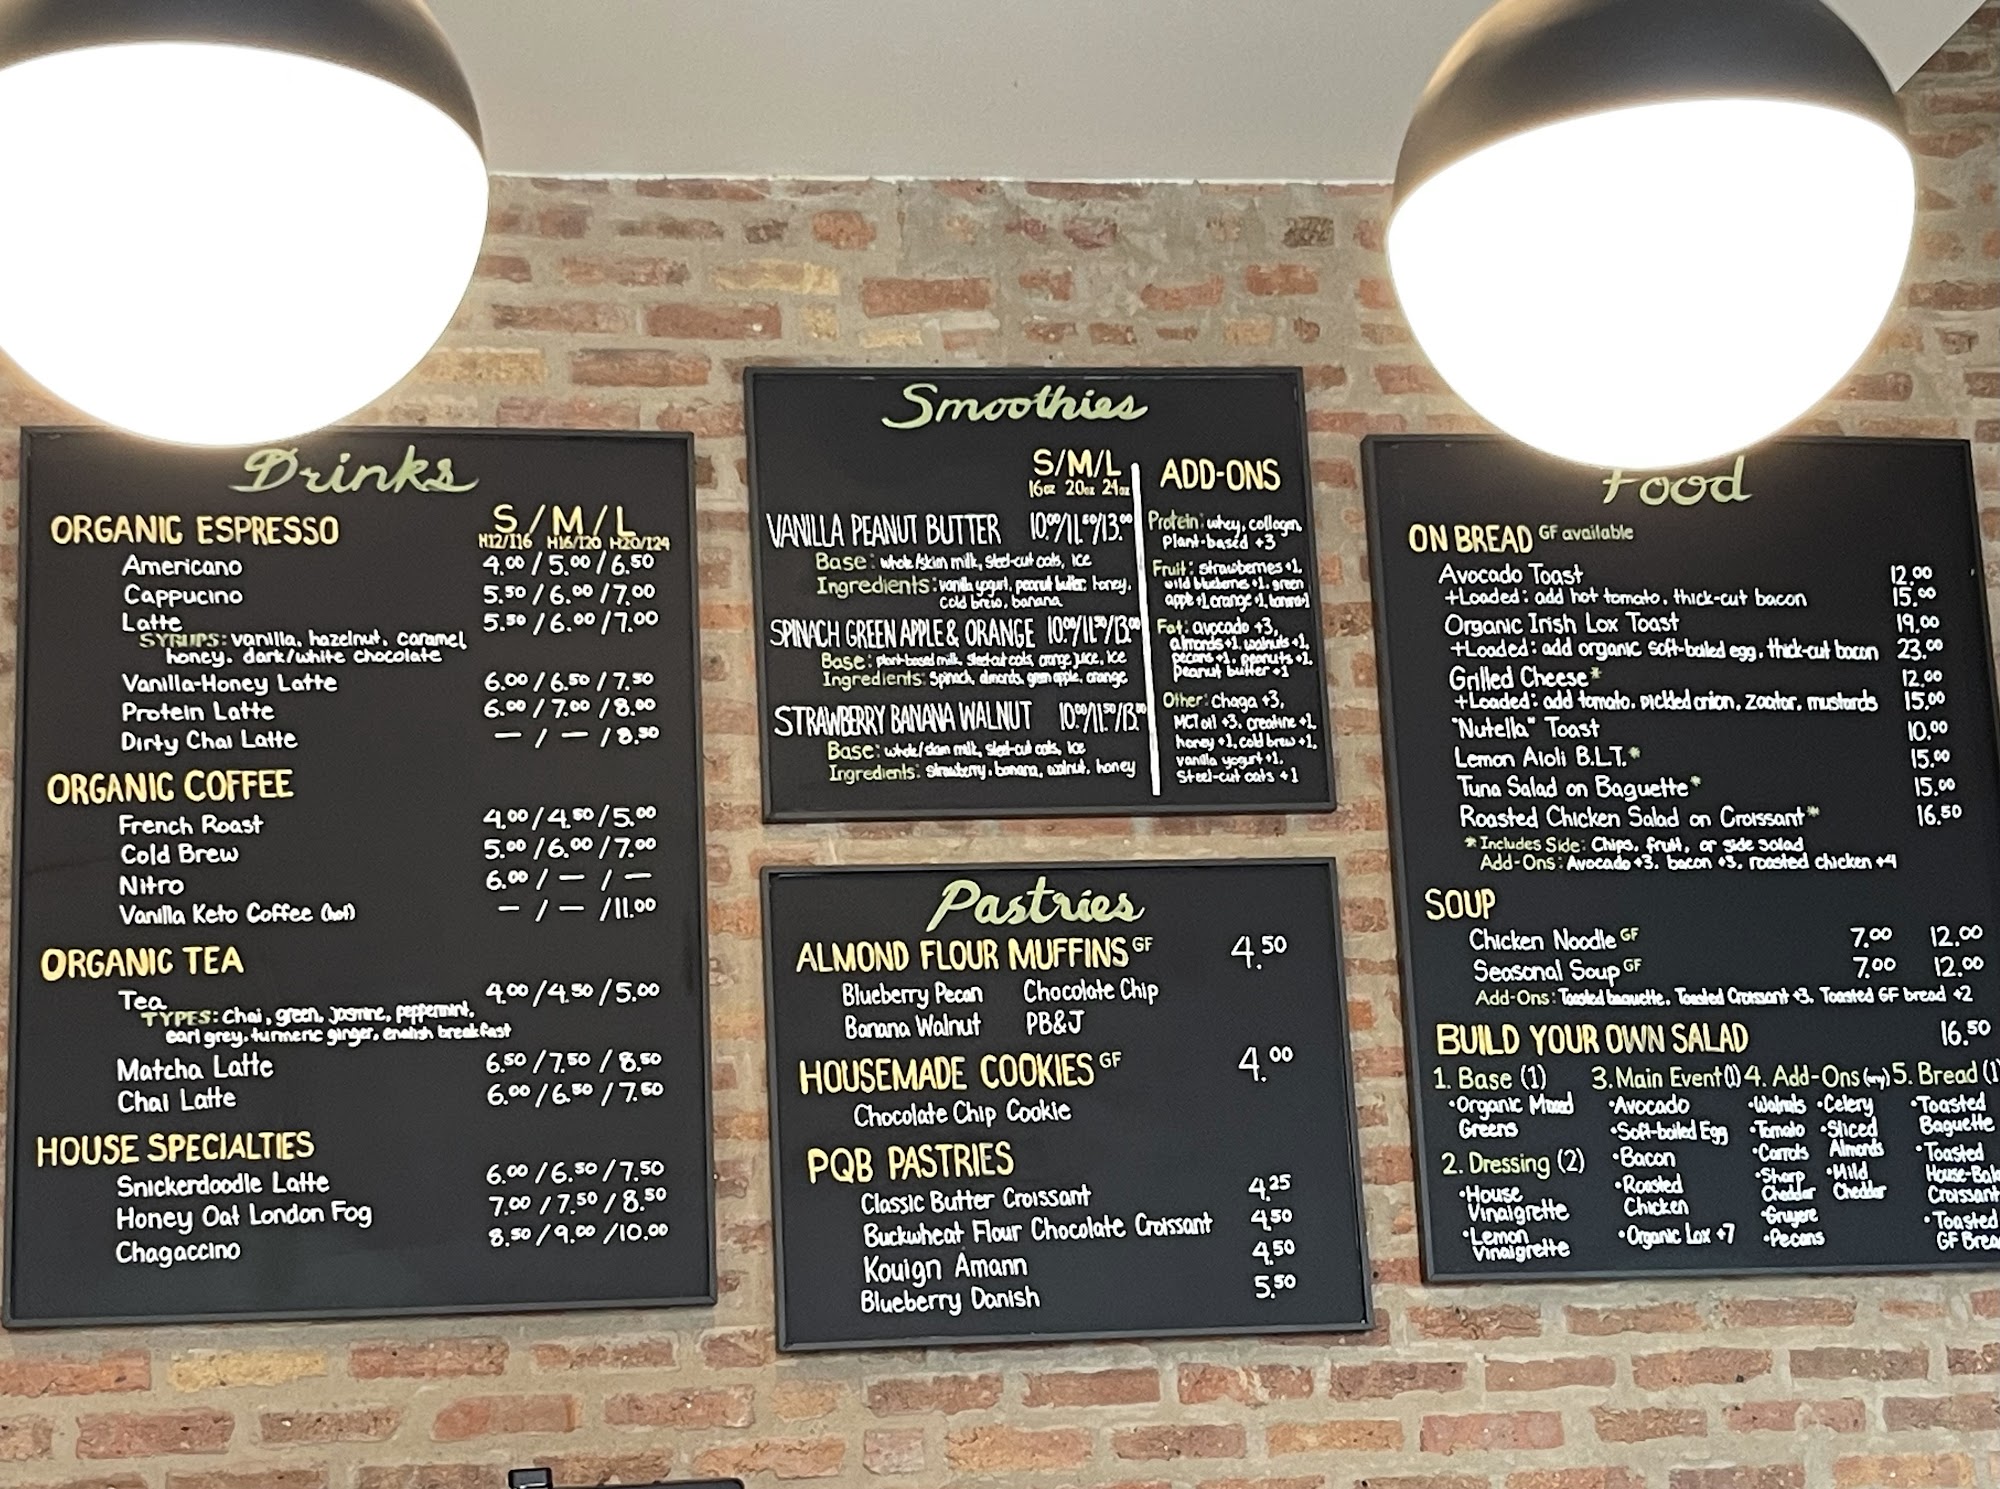 Drinks
S / M / L
H12/I16 H16/I20 H20/I24
ORGANIC ESPRESSO
Americano 4.00 / 5.00 / 6.50
Cappucino 5.50 / 6.00 / 7.00
Latte 5.50 / 6.00 / 7.00
SYRUPS: vanilla, hazelnut, caramel,
honey, dark/white chocolate
Vanilla-Honey Latte 6.00 / 6.50 / 7.50
Protein Latte 6.00 / 7.00 / 8.00
Dirty Chai Latte — / — / 8.50
ORGANIC COFFEE
French Roast 4.00 / 4.50 / 5.00
Cold Brew 5.00 / 6.00 / 7.00
Nitro 6.00 / — / —
Vanilla Keto Coffee (hot) — / — / 11.00
ORGANIC TEA
Tea 4.00 / 4.50 / 5.00
TYPES: chai, green, jasmine, peppermint,
earl grey, turmeric ginger, english breakfast
Matcha Latte 6.50 / 7.50 / 8.50
Chai Latte 6.00 / 6.50 / 7.50
HOUSE SPECIALTIES
Snickerdoodle Latte 6.00 / 6.50 / 7.50
Honey Oat London Fog 7.00 / 7.50 / 8.50
Chagaccino 8.50 / 9.00 / 10.00
Smoothies
S/M/L
16oz 20oz 24oz
VANILLA PEANUT BUTTER 10.00/11.50/13.00
Base: whole/skim milk, steel-cut oats, ice
Ingredients: vanilla yogurt, peanut butter, honey,
cold brew, banana
SPINACH GREEN APPLE & ORANGE 10.00/11.50/13.00
Base: plant-based milk, steel-cut oats, orange juice, ice
Ingredients: spinach, almonds, green apple, orange
STRAWBERRY BANANA WALNUT 10.00/11.50/13.00
Base: whole/skim milk, steel-cut oats, ice
Ingredients: strawberry, banana, walnut, honey
ADD-ONS
Protein: whey, collagen,
Plant-based +3
Fruit: strawberries +1,
wild blueberries +1, green
apple +1, orange +1, banana +1
Fat: avocado +3,
almonds +1, walnuts +1,
pecans +1, peanuts +1,
peanut butter +1
Other: chaga +3,
MCT oil +3, creatine +1,
honey +1, cold brew +1,
vanilla yogurt +1,
Steel-cut oats +1
Pastries
ALMOND FLOUR MUFFINS GF 4.50
Blueberry Pecan Chocolate Chip
Banana Walnut PB&J
HOUSEMADE COOKIES GF 4.00
Chocolate Chip Cookie
PQB PASTRIES
Classic Butter Croissant 4.25
Buckwheat Flour Chocolate Croissant 4.50
Kouign Amann 4.50
Blueberry Danish 5.50
Food
ON BREAD GF available
Avocado Toast 12.00
+Loaded: add hot tomato, thick-cut bacon 15.00
Organic Irish Lox Toast 19.00
+Loaded: add organic soft-boiled egg, thick-cut bacon 23.00
Grilled Cheese* 12.00
+Loaded: add tomato, pickled onion, zaatar, mustards 15.00
"Nutella" Toast 10.00
Lemon Aioli B.L.T.* 15.00
Tuna Salad on Baguette* 15.00
Roasted Chicken Salad on Croissant* 16.50
*Includes Side: Chips, fruit, or side salad
Add-Ons: Avocado +3, bacon +3, roasted chicken +4
SOUP
Chicken Noodle GF 7.00 12.00
Seasonal Soup GF 7.00 12.00
Add-Ons: Toasted baguette, Toasted Croissant +3, Toasted GF bread +2
BUILD YOUR OWN SALAD 16.50
1. Base (1)
•Organic Mixed
Greens
2. Dressing (2)
•House
Vinaigrette
•Lemon
Vinaigrette
3. Main Event (1)
•Avocado
•Soft-boiled Egg
•Bacon
•Roasted
Chicken
•Organic Lox +7
4. Add-Ons (any)
•Walnuts
•Tomato
•Carrots
•Sharp
Cheddar
•Gruyere
•Pecans
•Celery
•Sliced
Almonds
•Mild
Cheddar
5. Bread (1
•Toasted
Baguette
•Toasted
House-Bak
Croissant
•Toasted
GF Brea